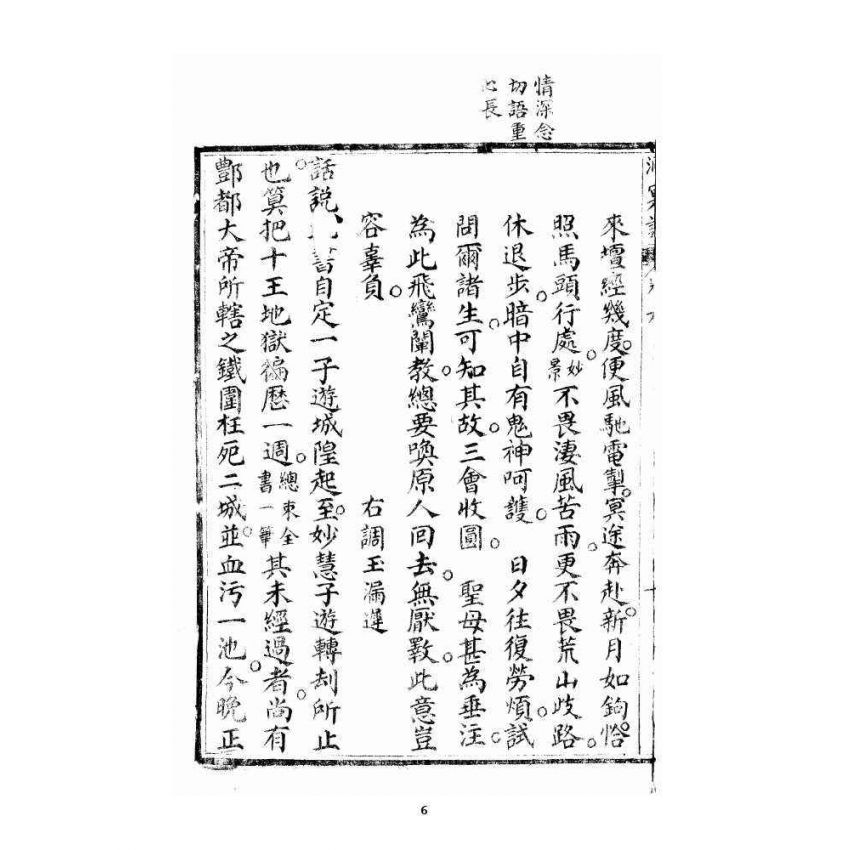 情深念
切語重
心長
來壇經幾度。便風馳電掣。冥途奔赴。新月如鉤。恰
照馬頭行處。妙景不畏淒風苦雨。更不畏荒山歧路。
休退步。暗中自有鬼神呵護。日夕往復勞煩。試
問爾諸生。可知其故。三會收圓。聖母甚為垂注。
為此飛鸞闡教。總要喚原人回去。無厭斁。此意豈
容辜負。右調玉漏遲
話說 書自定一子遊城隍起。至妙慧子遊轉刦所止
也。算把十王地獄徧歷一週。總束全書一筆其未經過者。尚有
酆都大帝所轄之鐵圍枉死二城。並血污一池。今晚正
6